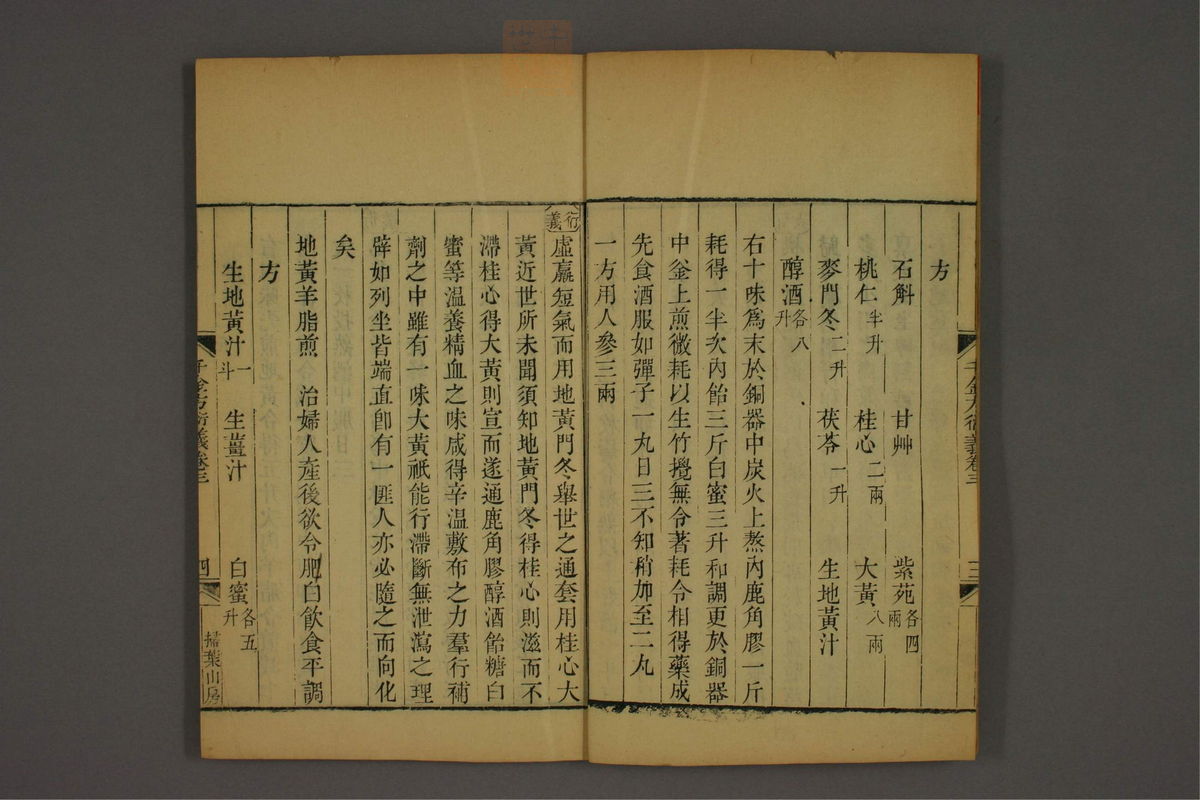 方
石斛　甘艸　紫苑各四兩
桃仁半升　桂心二兩　大黃八兩
麥門冬二升　茯苓一升　生地黃汁
醇酒各八升
右十味爲末於銅器中炭火上熬內鹿角膠一斤
耗得一半次內飴三斤白蜜三升和調更於銅器
中釜上煎微耗以生竹攪無令著耗令相得藥成
先食酒服如彈子一丸日三不知稍加至二丸
一方用人參三兩
衍義虛羸短氣而用地黃門冬舉世之通套用桂心大
黃近世所未聞須知地黃門冬得桂心則滋而不
滯桂心得大黃則宣而遂通鹿角膠醇酒飴糖白
蜜等溫養精血之味咸得辛溫敷布之力羣行補
劑之中雖有一味大黃祇能行滯斷無泄瀉之理
辟如列坐皆端直卽有一匪人亦必隨之而向化
矣
地黃羊脂煎　治婦人產後欲令肥白飲食平調
方
生地黃汁一斗　生薑汁　白蜜各五升
千金方衍義卷三　四　掃葉山房